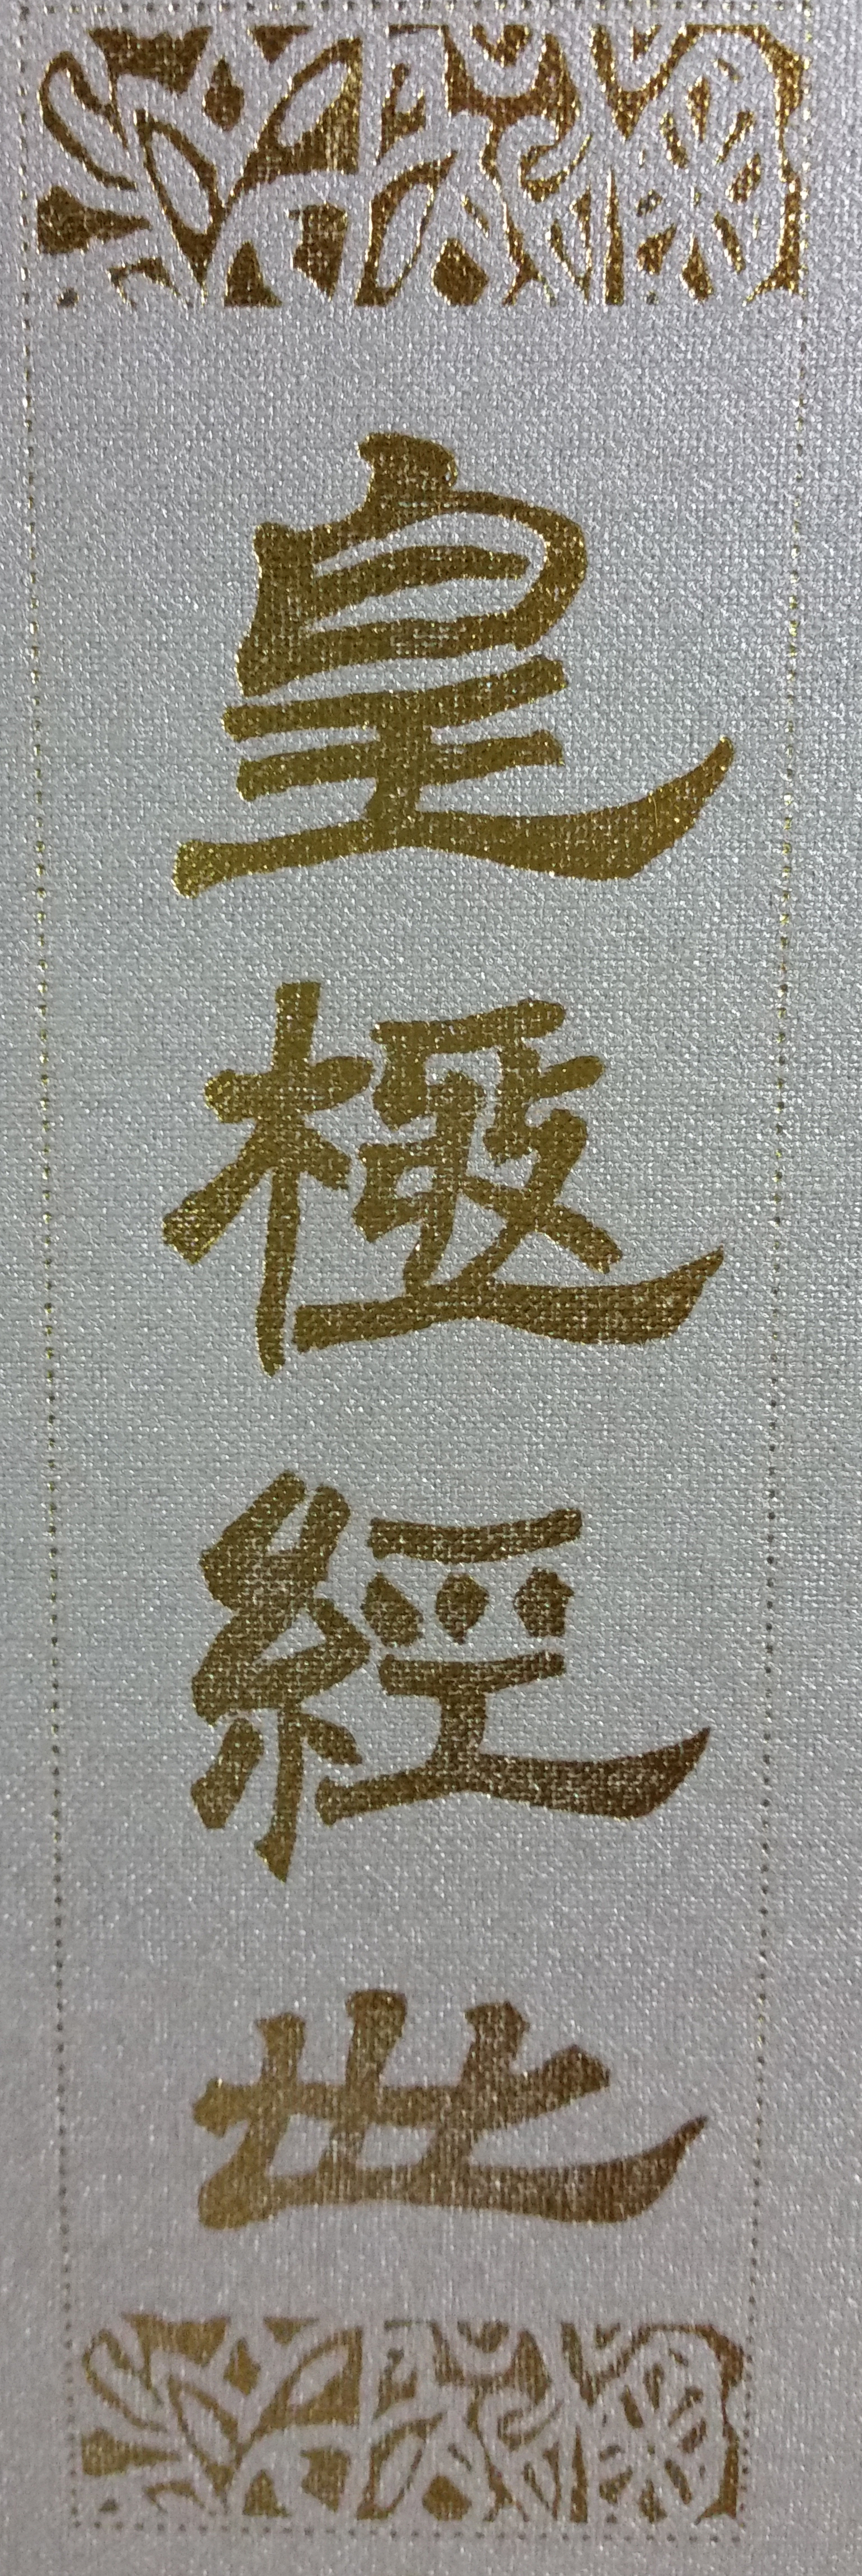 皇極經世